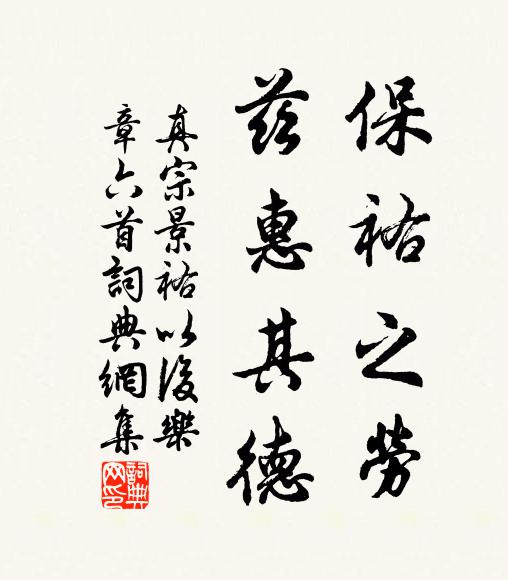 保祐之勞
茲惠其德
真宗景祐以後樂
章六首詞典網集
詞典
网印